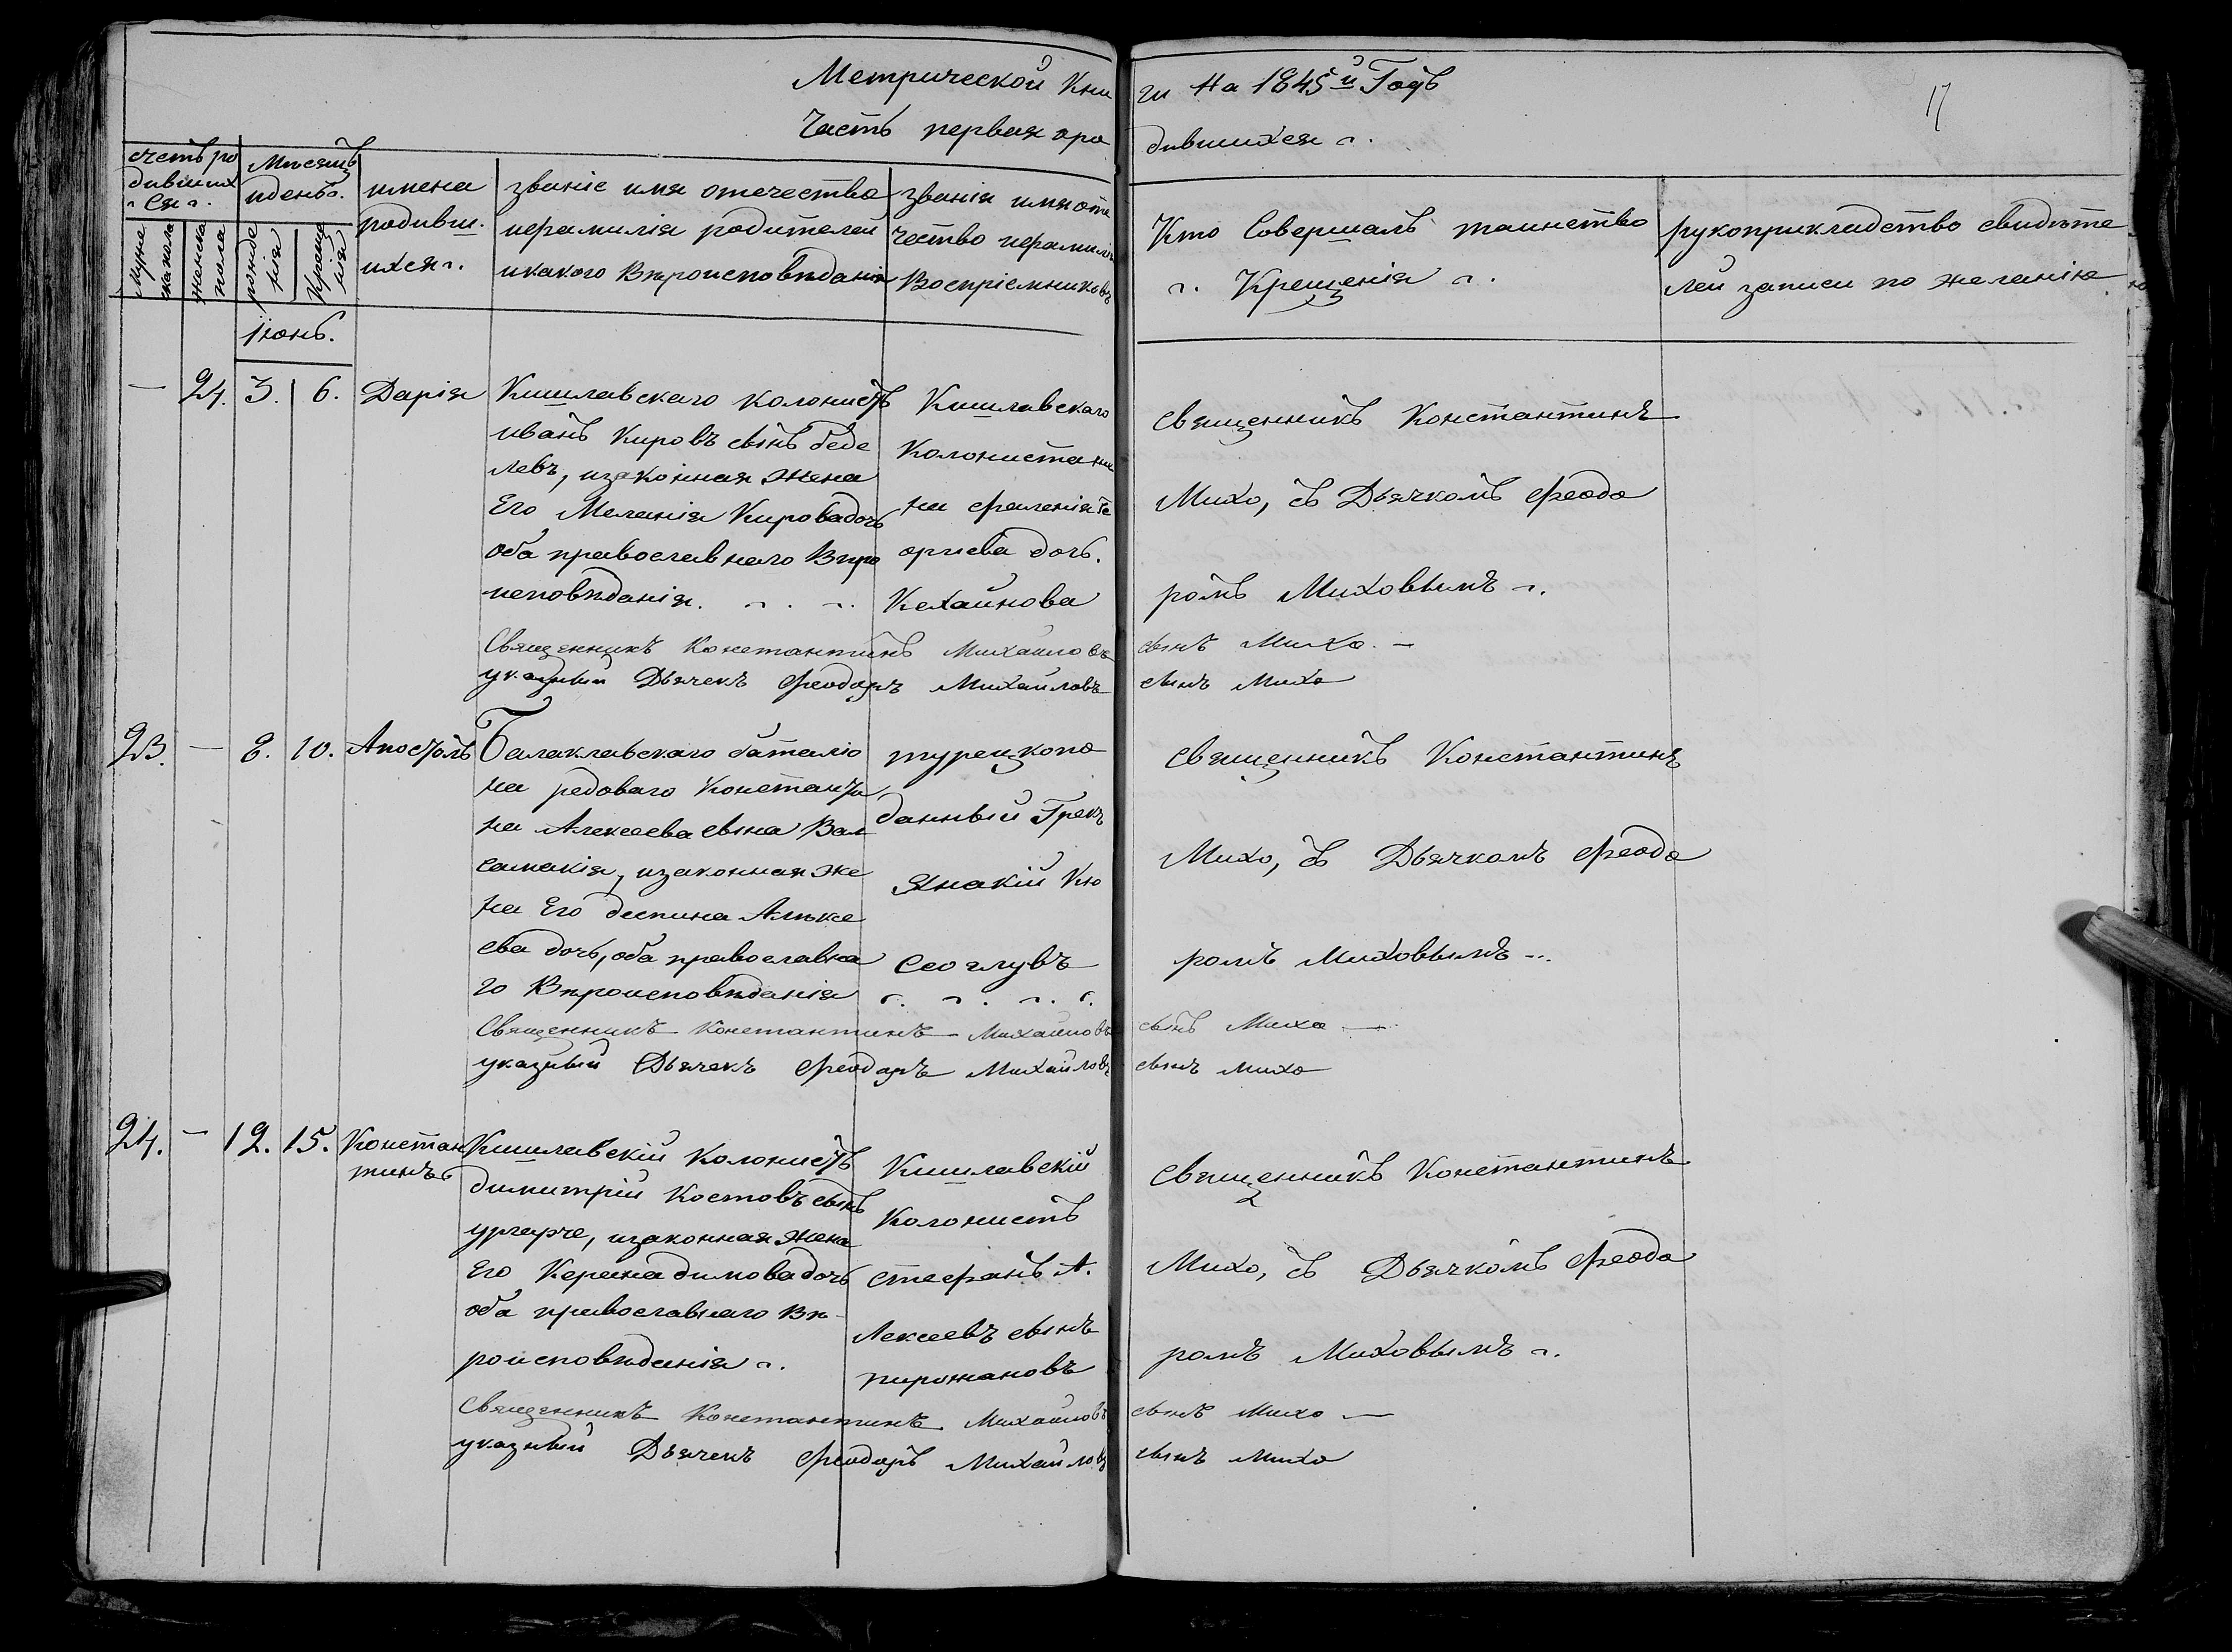 Метрической Кни ги На 1845й Годъ
17
Часть первая оро дившихся
счетъ ро
дивших
ся
Мѣсяцъ
иденьъ.
мужес
ка пола
женска
пола
рожде
нія
Креще
нія
имена
родивш.
ихся
званіе имя отечество
ифамилія родителей
икакого Вѣроисповѣданія
званія имя оте
чество ифамилія
Воспріемниковъ
Кто Совершалъ таинство
Крещенія
рукоприкладство свидѣте
лей записи по желанію
Іюнь.
— 24. 3. 6. Дарія
Кишлавскаго колонистъ
иванъ Кировъ сынъ беде
левъ, изаконная Жена
Его Меланія Кирова дочь
оба православнаго Вѣро
исповѣданія.
Кишлавскаго
Колониста же
на Фаленія Ге
оргиева дочь.
Кехайнова
священникъ Константинъ
Михо, съ Дьячкомъ Феодо
ромъ Миховымъ
Священникъ Константинъ Михаиловъ сынъ Михо. —
указный Дьячекъ Феодоръ Михайловъ сынъ Михо
23. — 8. 10. Апостолъ
Балаклавскаго баталіо
на редоваго Константи
на Алексеева сына Вал
самакія, изаконная же
на Его деспина Алексе
ева дочь, оба православна
го Вѣроисповѣданія
турецкопо
данный Грекъ
Янакій Кю
Сеоглувъ
священникъ Константинъ
Михо, съ Дьячкомъ Феодо
ромъ Миховымъ
Священникъ Константинъ Михаиловъ сынъ Михо —
указный Дьячекъ Феодоръ Михайловъ сынъ Михо
24. — 12. 15. Констан
тинъ
Кишлавскій Колонистъ
димитрій Костовъ сынъ
ургарче, изаконная Жена
Его Керана димова дочь
оба православнаго Вѣ
роисповѣданія
Кишлавскій
Колонистъ
стефанъ А.
Лексеевъ сынъ
пирожановъ
священникъ Константинъ
Михо, съ Дьячкомъ Феодо
ромъ Миховымъ
Священникъ Константинъ Михаиловъ сынъ Михо —
указный Дьячекъ Феодоръ Михайловъ сынъ Михо